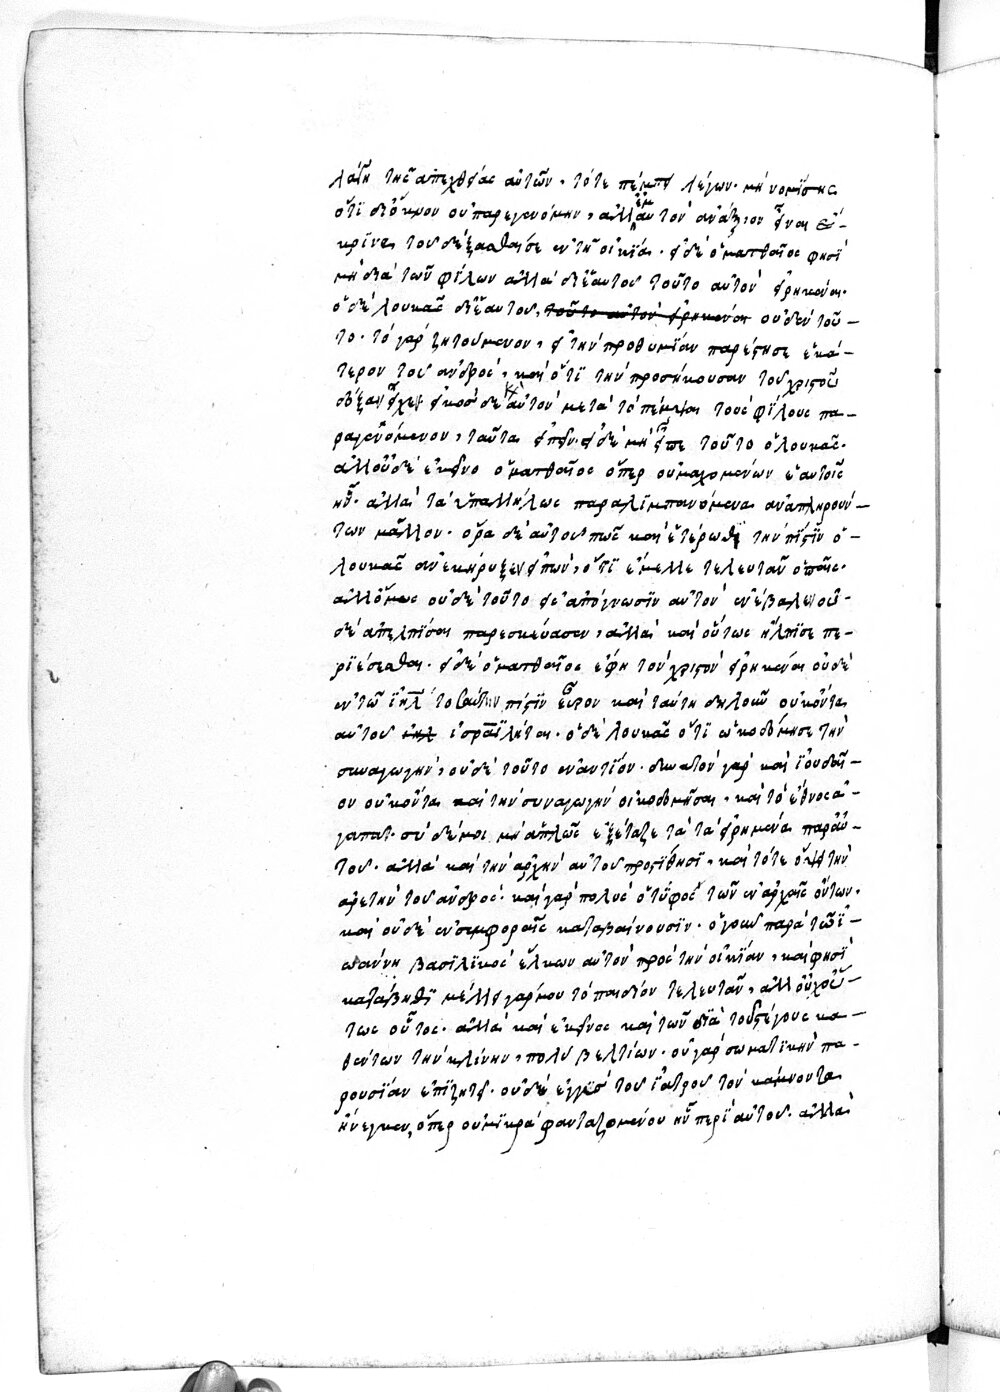 λάγη τῆς ἀπεχθείας αὐτῶν, τότε πέμπει λέγων· μὴ νομίσης
ὅτι δι' ὄκνον οὐ παρεγενόμην, ἀλλ' ἐμαυτὸν ἀνάξιον εἶναι ἔ-
κρινα τοῦ δέξασθαί σε ἐν τῇ οἰκίᾳ. εἰ δὲ ὁ ματθαῖος φησὶ
μὴ διὰ τῶν φίλων ἀλλὰ δι' ἑαυτοῦ τοῦτο αὐτὸν εἰρηκέναι.
ὁ δὲ λουκᾶς δι' ἑαυτοῦ, τοῦτο αὐτὸν εἰρηκέναι οὐδὲν τοῦ-
το. τὸ γὰρ ζητούμενον, εἰ τὴν προθυμίαν παρέστησε ἑκά-
τερον τοῦ ἀνδρὸς, καὶ ὅτι τὴν προσήκουσαν τοῦ χριστοῦ
δόξαν εἶχεν εἰκὸς δὲ καὶ αὐτὸν μετὰ τὸ πέμψαι τοὺς φίλους πα-
ραγενόμενον, ταῦτα εἰπεῖν. εἰ δὲ μὴ εἶπε τοῦτο ὁ λουκᾶς.
ἀλλ' οὐδὲ ἐκεῖνο ὁ ματθαῖος ὅπερ οὐ μαχομένων ἑαυτοῖς
ἦν. ἀλλὰ τὰ ὑπ' ἀλλήλως παραλιμπανόμενα ἀναπληρούν-
των μᾶλλον. ὅρα δὲ αὐτοῦ πῶς καὶ ἑτέρωθεν τὴν πίστιν ὁ
λουκᾶς ἀνεκήρυξεν εἰπὼν, ὅτι ἔμελλε τελευτᾶν ὁ παῖς.
ἀλλ' ὅμως οὐδὲ τοῦτο εἰς ἀπόγνωσιν αὐτὸν ἐνέβαλεν οὐ-
δὲ ἀπελπίσαι παρεσκεύασεν, ἀλλὰ καὶ οὕτως ἤλπισε πε-
ριέσεσθαι. εἰ δὲ ὁ ματθαῖος ἔφη τὸν χριστὸν εἰρηκέναι οὐδὲ
ἐν τῷ ἰηλ τοσαύτην πίστιν εὗρον καὶ ταύτη δηλοῖ οὐκ ὄντα
αὐτοῦ ἰηλ ἰσραϊλήτα. ὁ δὲ λουκᾶς ὅτι ᾠκοδόμησε τὴν
συναγωγὴν, οὐδὲ τοῦτο ἐναντίον. δυνατὸν γὰρ καὶ ἰουδαῖ-
ον οὐκ ὄντα καὶ τὴν συναγωγὴν οἰκοδομῆσαι, καὶ τὸ ἔθνος ἀ-
γαπᾶν. σὺ δέ μοι μὴ ἁπλῶς ἐξέταζε τὰ τὰ εἰρημένα παρ' αὐ-
τοῦ. ἀλλὰ καὶ τὴν ἀρχὴν αὐτοῦ προστίθησι, καὶ τότε ὄψει τὴν
ἀρετὴν τοῦ ἀνδρὸς. καὶ γὰρ πολὺς ὁ τῦφος τῶν ἐν ἀρχαῖς ὄντων.
καὶ οὐδὲ ἐν συμφοραῖς καταβαίνουσιν. ὁ γοῦν παρὰ τῷ ἰ-
ωάννη βασιλικὸς ἕλκων αὐτὸν πρὸς τὴν οἰκίαν, καὶ φησὶ
κατάβηθι μέλλει γάρ μου τὸ παιδίον τελευτᾶν, ἀλλ' οὐχ οὕ-
τως οὗτος. ἀλλὰ καὶ ἐκεῖνος καὶ τῶν διὰ τοῦ στέγους κα-
θέντων τὴν κλίνην, πολὺ βελτίων. οὐ γὰρ σωματικὴν πα-
ρουσίαν ἐπιζητεῖ. οὐδὲ ἐγγὺς τοῦ ἰατροῦ τὸν κάμνοντα
ἤνεγκεν, ὅπερ οὐ μικρὰ φανταζομένου ἦν περὶ αὐτοῦ. ἀλλὰ